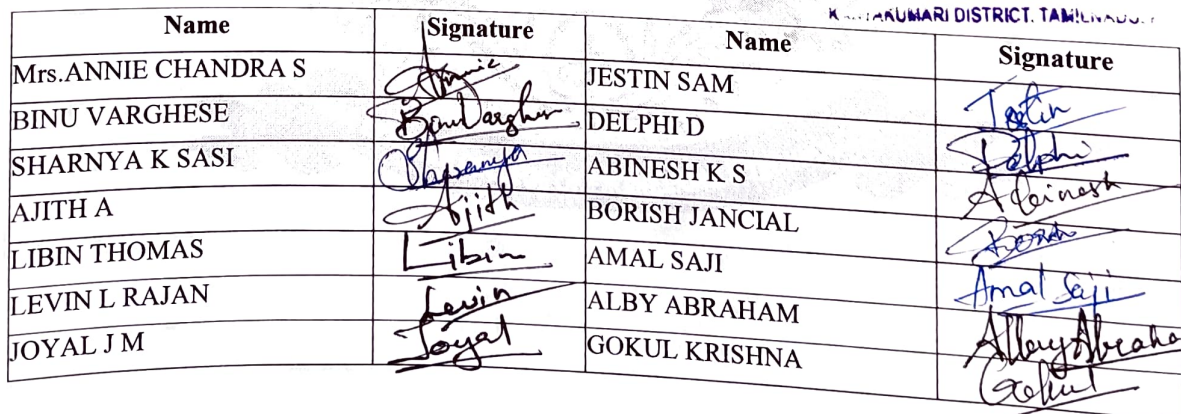 KUMARI DISTRICT. TAMILNADU.
Name Signature Name Signature
Mrs.ANNIE CHANDRA S Annie JESTIN SAM Jestin
BINU VARGHESE Binu Varghese DELPHI D Delphi
SHARNYA K SASI Sharanya ABINESH K S Abinesh
AJITH A Ajith BORISH JANCIAL Borish
LIBIN THOMAS Libin AMAL SAJI Amal Saji
LEVIN L RAJAN Levin ALBY ABRAHAM Alby Abraha
JOYAL J M Joyal GOKUL KRISHNA Gokul